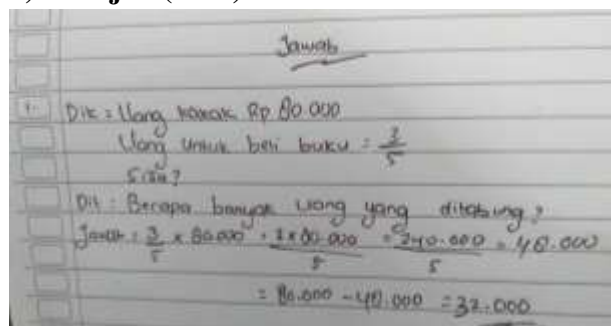 Jawab
1. Dik : Uang kakak Rp 80.000
Uang untuk beli buku = 3/5
sisa?
Dit : Berapa banyak uang yang ditabung?
Jawab : 3/5 x 80.000 = 3x80.000/5 = 240.000/5 = 48.000
= 80.000 - 48.000 = 32.000